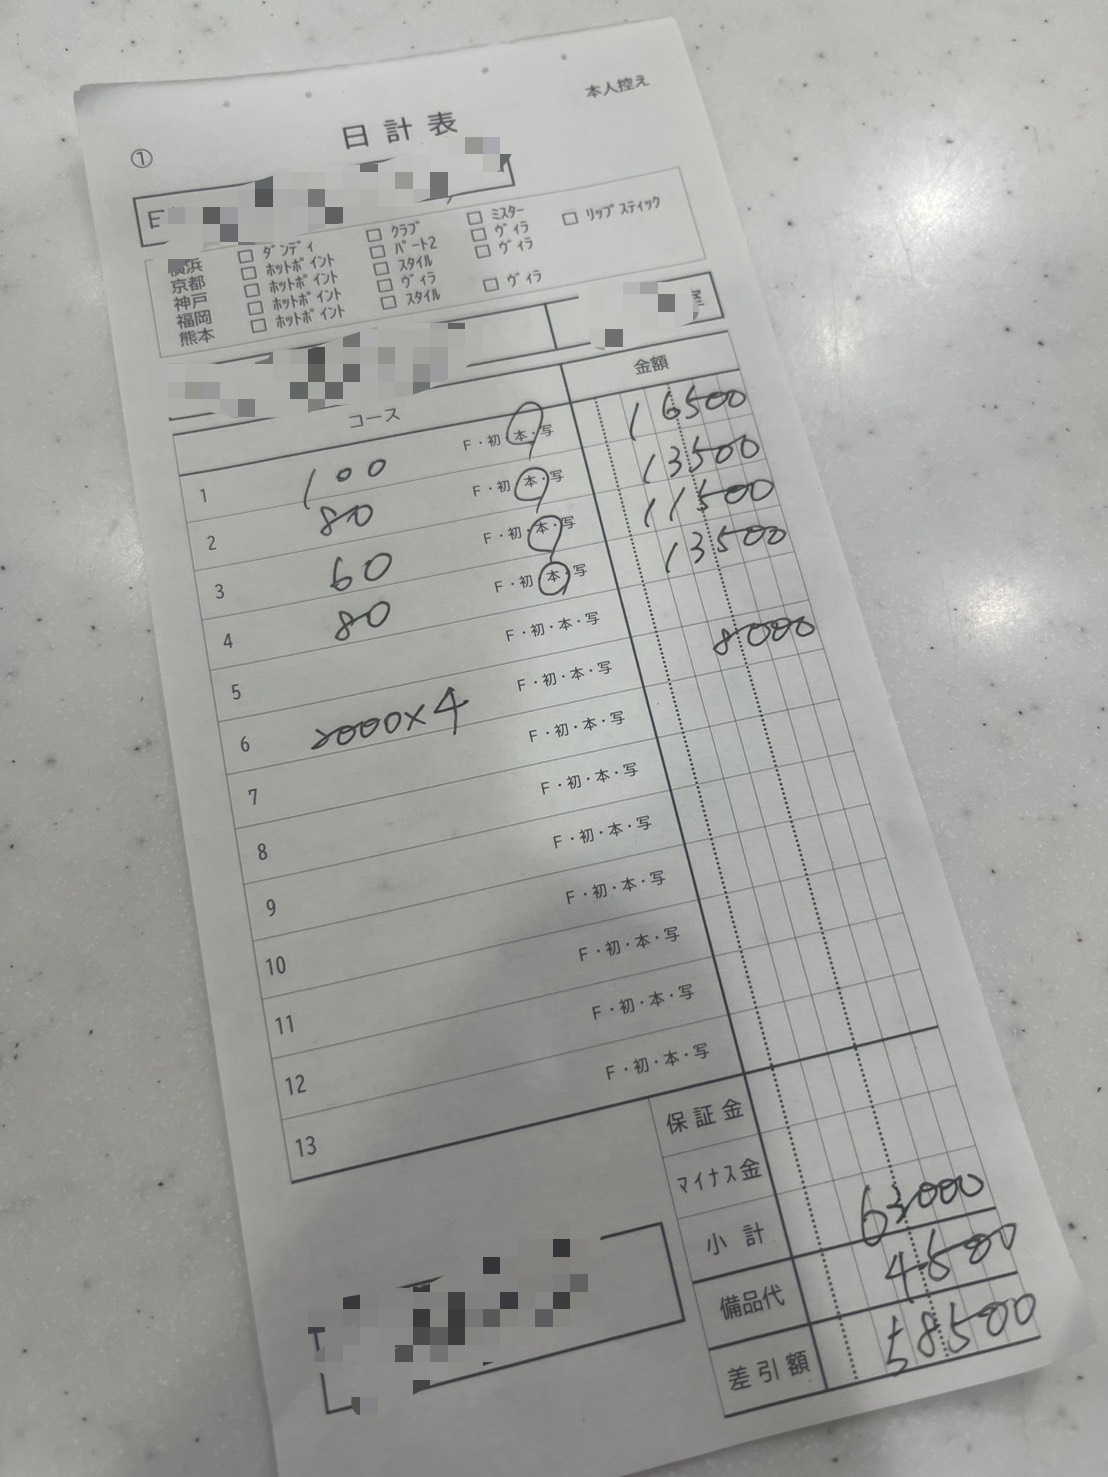 本人控え
日計表
①
E
横浜 □ ダンディ □ クラブ □ ミスター □ リップスティック
京都 □ ホットポイント □ パート2 □ ヴィラ
神戸 □ ホットポイント □ スタイル □ ヴィラ
福岡 □ ホットポイント □ ヴィラ
熊本 □ ホットポイント □ スタイル □ ヴィラ
コース 金額
1 100 F・初・本・写 16500
2 80 F・初・本・写 13500
3 60 F・初・本・写 11500
4 80 F・初・本・写 13500
5 F・初・本・写
6 2000×4 F・初・本・写 8000
7 F・初・本・写
8 F・初・本・写
9 F・初・本・写
10 F・初・本・写
11 F・初・本・写
12 F・初・本・写
13 F・初・本・写
保証金
マイナス金
小計 63000
備品代 4500
差引額 58500
T